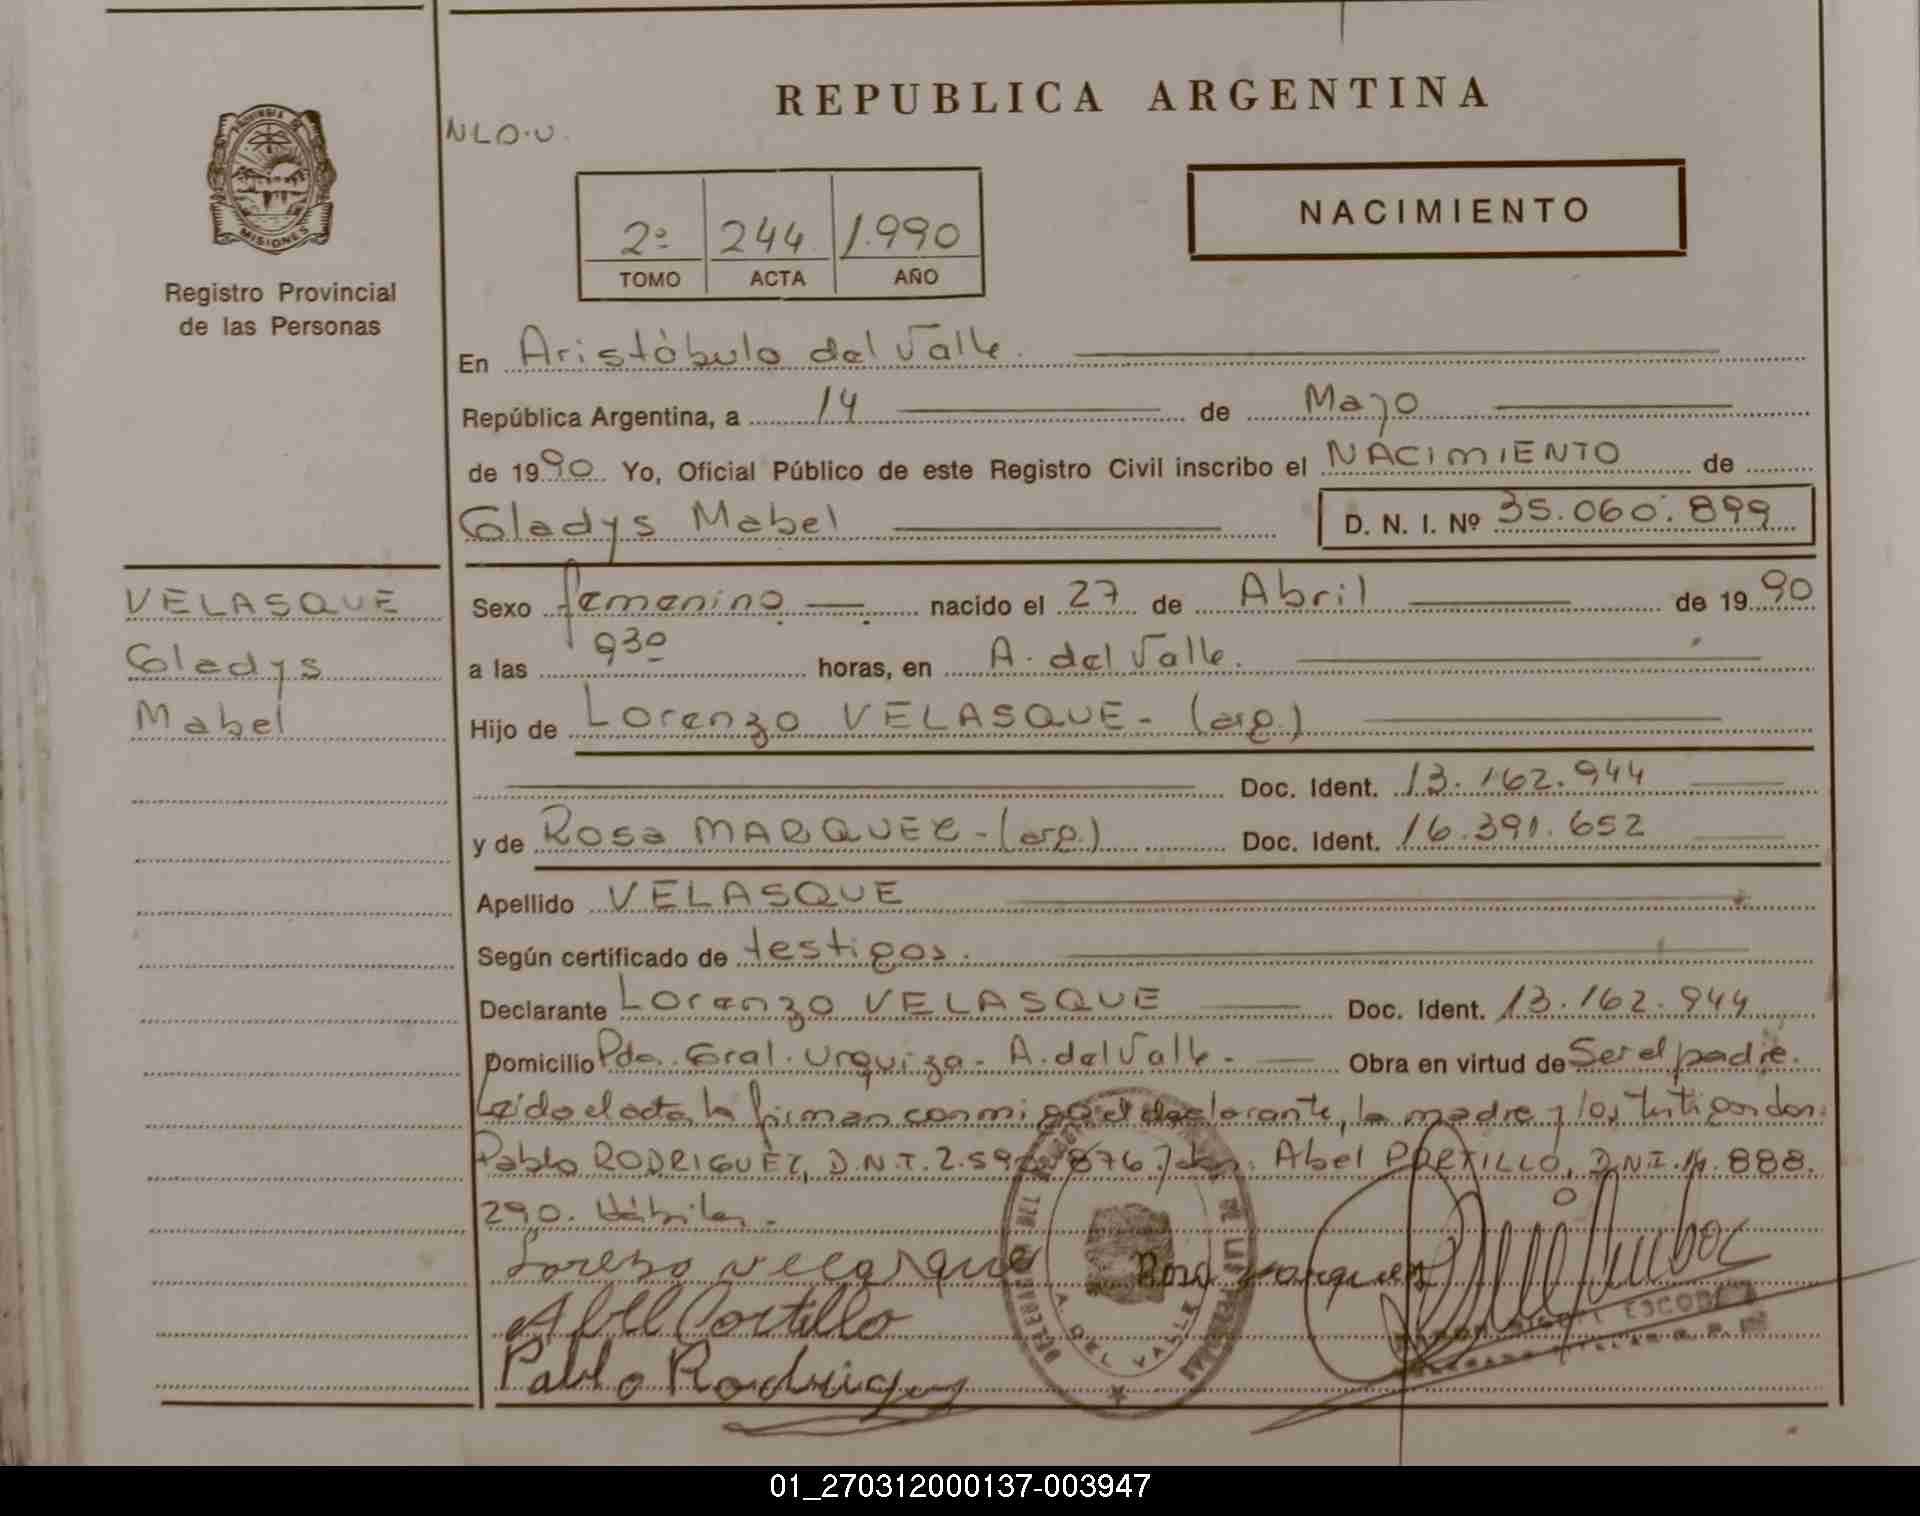 REPUBLICA ARGENTINA
NLD.U.
PROVINCIA DE
MISIONES
Registro Provincial
de las Personas
2º 244 1.990
TOMO ACTA AÑO
NACIMIENTO
En Aristóbulo del Valle.
República Argentina, a 14 de Mayo
de 1990 Yo, Oficial Público de este Registro Civil inscribo el NACIMIENTO de
Gladys Mabel D. N. I. Nº 35.060.899
VELASQUE
Gladys
Mabel
Sexo femenino nacido el 27 de Abril de 1990
a las 930 horas, en A. del Valle.
Hijo de Lorenzo VELASQUE - (arg.)
Doc. Ident. 13.162.944
y de Rosa MARQUEZ - (arg.) Doc. Ident. 16.391.652
Apellido VELASQUE
Según certificado de testigos.
Declarante Lorenzo VELASQUE Doc. Ident. 13.162.944
Domicilio Pdo. Gral. Urquiza - A. del Valle - Obra en virtud de Ser el padre.
Leído el acta la firman conmigo el declarante, la madre y los testigos don:
Pablo RODRIGUEZ, D.N.I. 876 y don: Abel PORTILLO, D.N.I. 14.888.
290. Hábiles -
Lorenzo Velasque
Rosa Marquez
Abel Portillo
Pablo Rodriguez
A. DEL VALLE
DE LAS PERSONAS
ESCOBAR
01_270312000137-003947